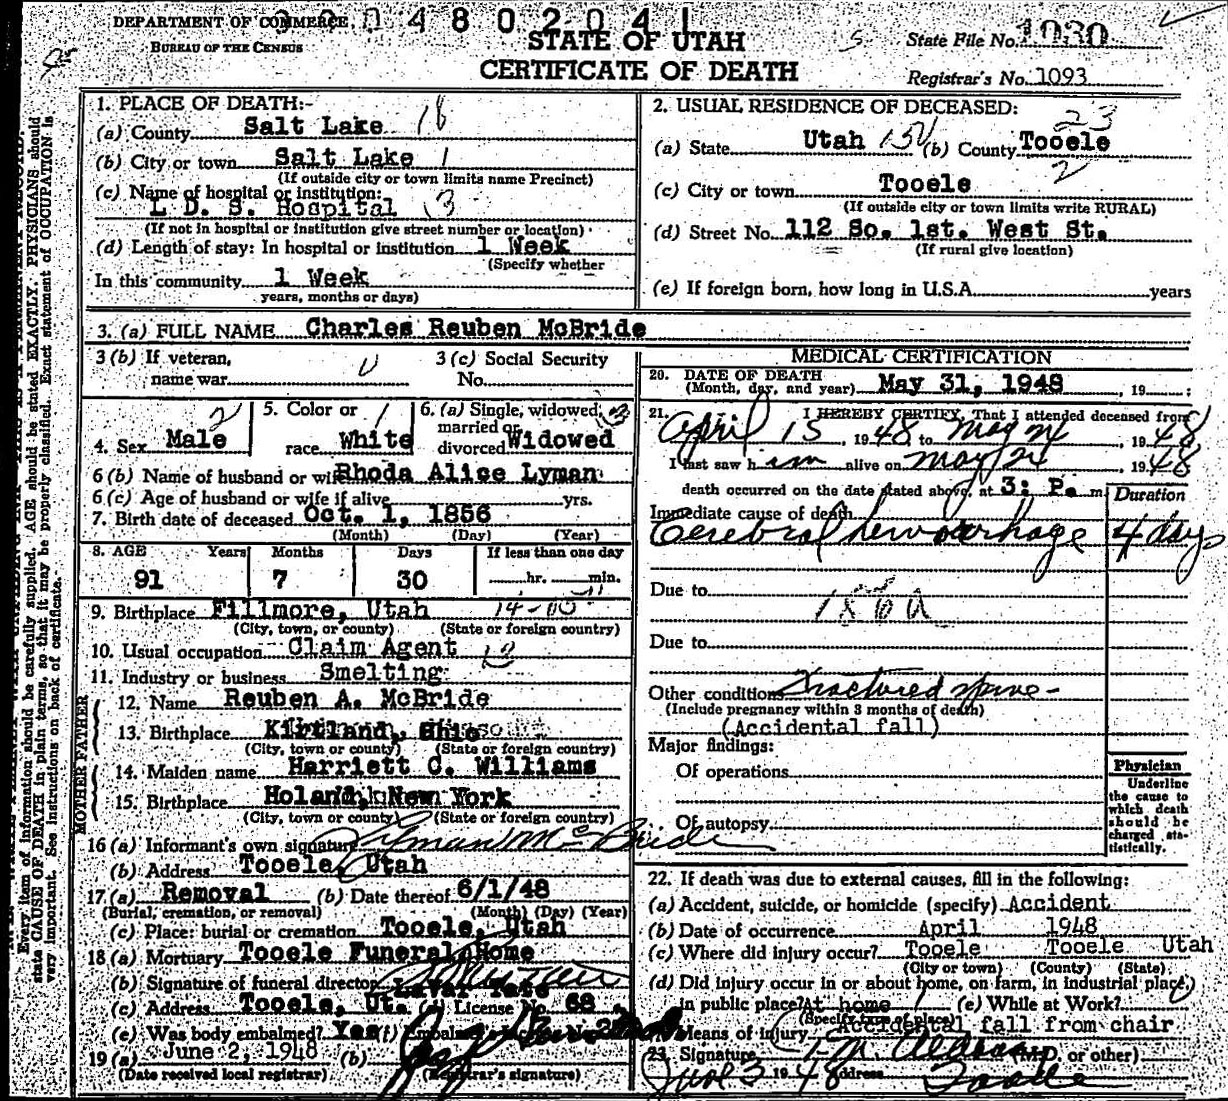 DEPARTMENT OF COMMERCE
BUREAU OF THE CENSUS
480204
STATE OF UTAH
CERTIFICATE OF DEATH
State File No. 1030
Registrar's No. 1093
1. PLACE OF DEATH:-
(a) County Salt Lake 18
(b) City or town Salt Lake 1
(If outside city or town limits name Precinct)
(c) Name of hospital or institution:
L. D. S. Hospital 13
(If not in hospital or institution give street number or location)
(d) Length of stay: In hospital or institution 1 Week
(Specify whether
In this community 1 Week
years, months or days)
2. USUAL RESIDENCE OF DECEASED:
23
(a) State Utah (b) County Tooele
2
(c) City or town Tooele
(If outside city or town limits write RURAL)
(d) Street No. 112 So. 1st. West St.
(If rural give location)
(e) If foreign born, how long in U.S.A. years
3. (a) FULL NAME Charles Reuben McBride
3 (b) If veteran,
name war
3 (c) Social Security
No.
4. Sex Male 2
5. Color or
race White 1
6. (a) Single, widowed, 3
married or
divorced Widowed
6 (b) Name of husband or wife Rhoda Alice Lyman
6 (c) Age of husband or wife if alive yrs.
7. Birth date of deceased Oct. 1, 1856
(Month) (Day) (Year)
8. AGE Years Months Days If less than one day
91 7 30 hr. min.
9. Birthplace Fillmore, Utah
(City, town, or county) (State or foreign country)
10. Usual occupation Claim Agent
11. Industry or business Smelting
FATHER
12. Name Reuben A. McBride
13. Birthplace Kirtland, Ohio
(City, town or county) (State or foreign country)
MOTHER
14. Maiden name Harriett C. Williams
15. Birthplace Holand, New York
(City, town or county) (State or foreign country)
16 (a) Informant's own signature Lyman McBride
(b) Address Tooele, Utah
17 (a) Removal (b) Date thereof 6/1/48
(Burial, cremation, or removal) (Month) (Day) (Year)
(c) Place: burial or cremation Tooele, Utah
18 (a) Mortuary Tooele Funeral Home
(b) Signature of funeral director
(c) Address Tooele, Ut. (d) License No. 68
(e) Was body embalmed? Yes (f) Embalmer's
19 (a) June 2, 1948 (b)
(Date received local registrar) (Registrar's signature)
MEDICAL CERTIFICATION
20. DATE OF DEATH
(Month, day, and year) May 31, 1948, 19 :
21. I HEREBY CERTIFY, That I attended deceased from
April 15, 1948 to May 24, 1948
I last saw him alive on May 24, 1948
death occurred on the date stated above, at 3: P. m.
Duration
Immediate cause of death
Cerebral hemorrhage 4 days
Due to
Due to
Other conditions Fractured spine-
(Include pregnancy within 3 months of death)
(Accidental fall)
Major findings:
Of operations
Of autopsy
Physician
Underline
the cause to
which death
should be
charged sta-
tistically.
22. If death was due to external causes, fill in the following:
(a) Accident, suicide, or homicide (specify) Accident
(b) Date of occurrence April 1948
(c) Where did injury occur? Tooele Tooele Utah
(City or town) (County) (State)
(d) Did injury occur in or about home, on farm, in industrial place,
in public place? At home (e) While at Work?
(Specify type of place)
Means of injury Accidental fall from chair
23. Signature (M.D. or other)
June 3 1948 Address Tooele
Every item of information should be carefully supplied. AGE should be stated EXACTLY. PHYSICIANS should
state CAUSE OF DEATH in plain terms, so that it may be properly classified. Exact statement of OCCUPATION is
very important. See instructions on back of certificate.